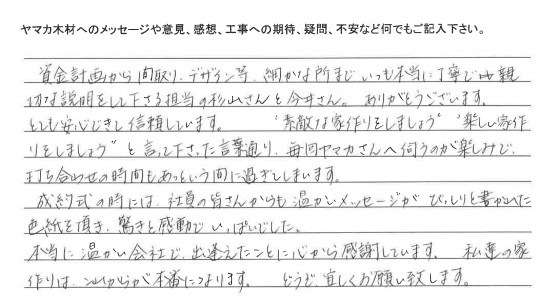 ヤマカ木材へのメッセージや意見、感想、工事への期待、疑問、不安など何でもご記入下さい。
資金計画から間取り、デザイン等、細かな所まで いつも本当に丁寧でご親
切な説明をして下さる担当の杉山さんと今井さん。 ありがとうございます。
とても安心できて信頼しています。 “素敵な家作りをしましょう”“楽しい家作
りをしましょう”と言って下さった言葉通り、毎回ヤマカさんへ伺うのが楽しみで、
打ち合わせの時間もあっという間に過ぎてしまいます。
成約式の時には、社員の皆さんからも温かいメッセージが びっしりと書かれた
色紙を頂き、驚きと感動で いっぱいでした。
本当に温かい会社で、出逢えたことに心から感謝しています。 私達の家
作りは、これからが本番になります。 どうぞ、宜しくお願い致します。